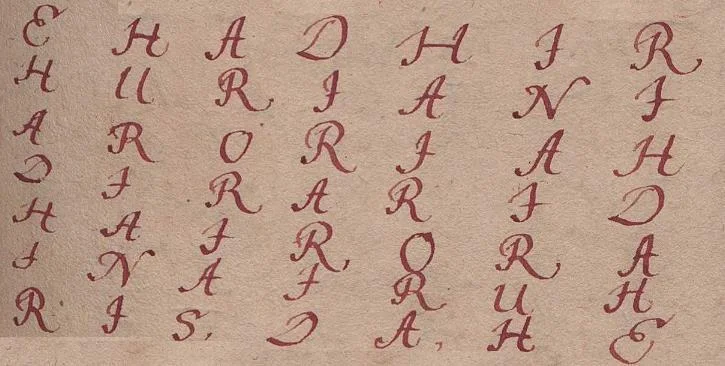 E H A D H I R
H U R I A N I
A R O R I A H
D I R A R I D
H A I R, O R A
I N A I R U H
R I S. D A, H E